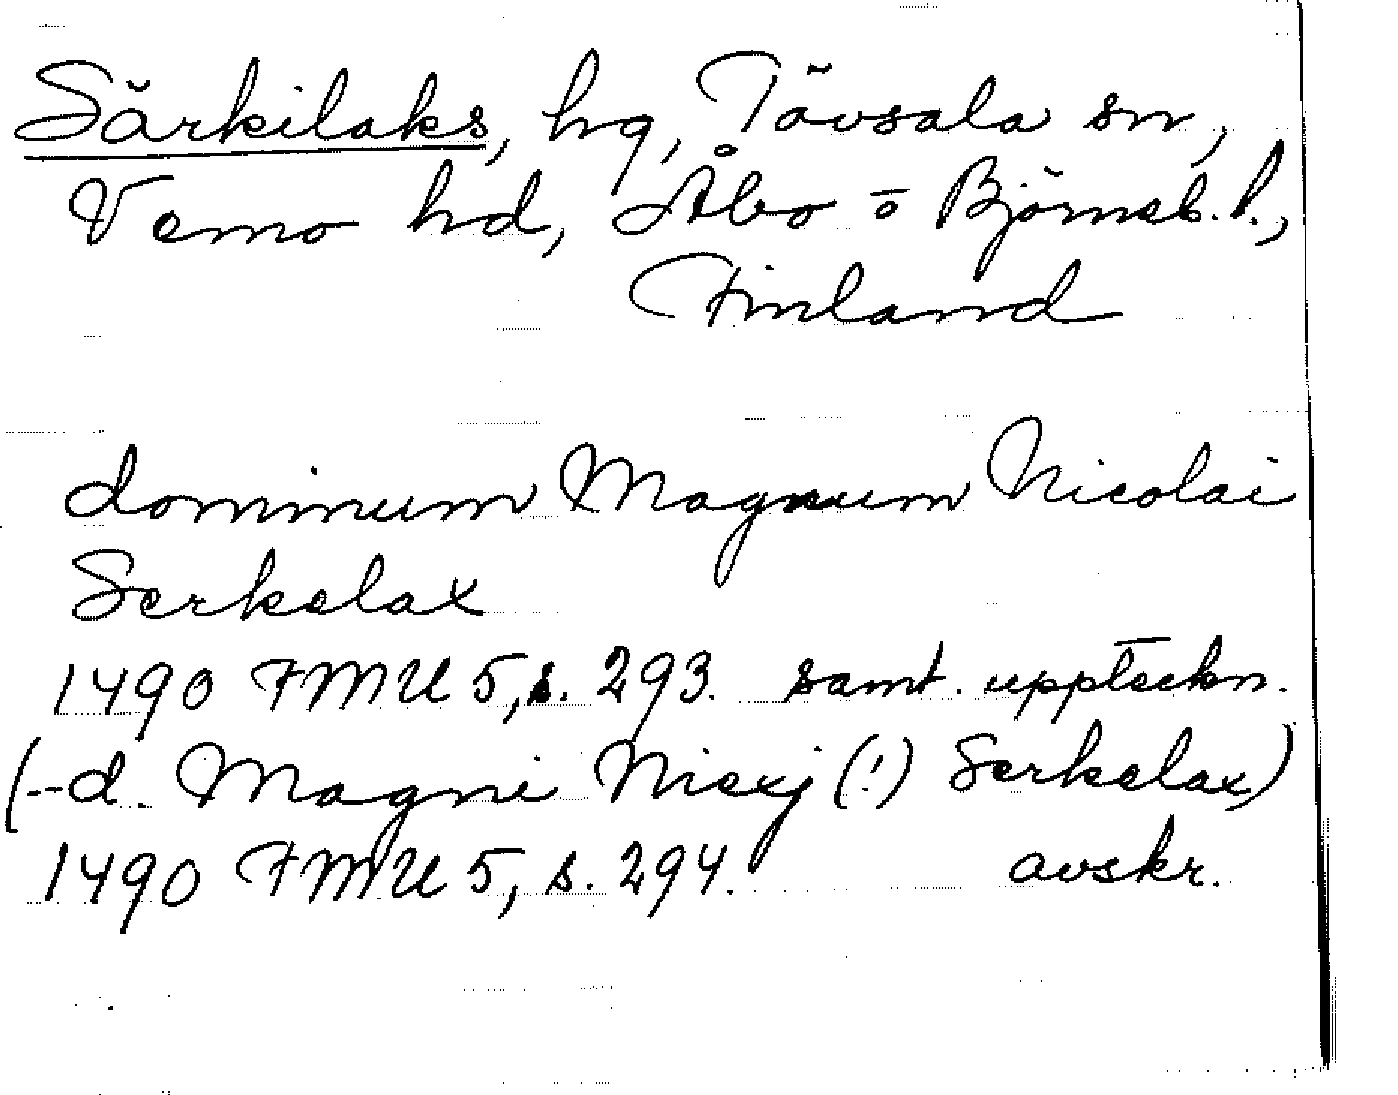 Särkilaks, hg, Tövsala sn,
Vemo hd, Åbo o Björneb. l.,
Finland
dominum Magnum Nicolai
Serkelax
1490 FMU 5, s. 293. samt. uppteckn.
(--d. Magni Nicxj (!) Serkelax)
1490 FMU 5, s. 294. avskr.